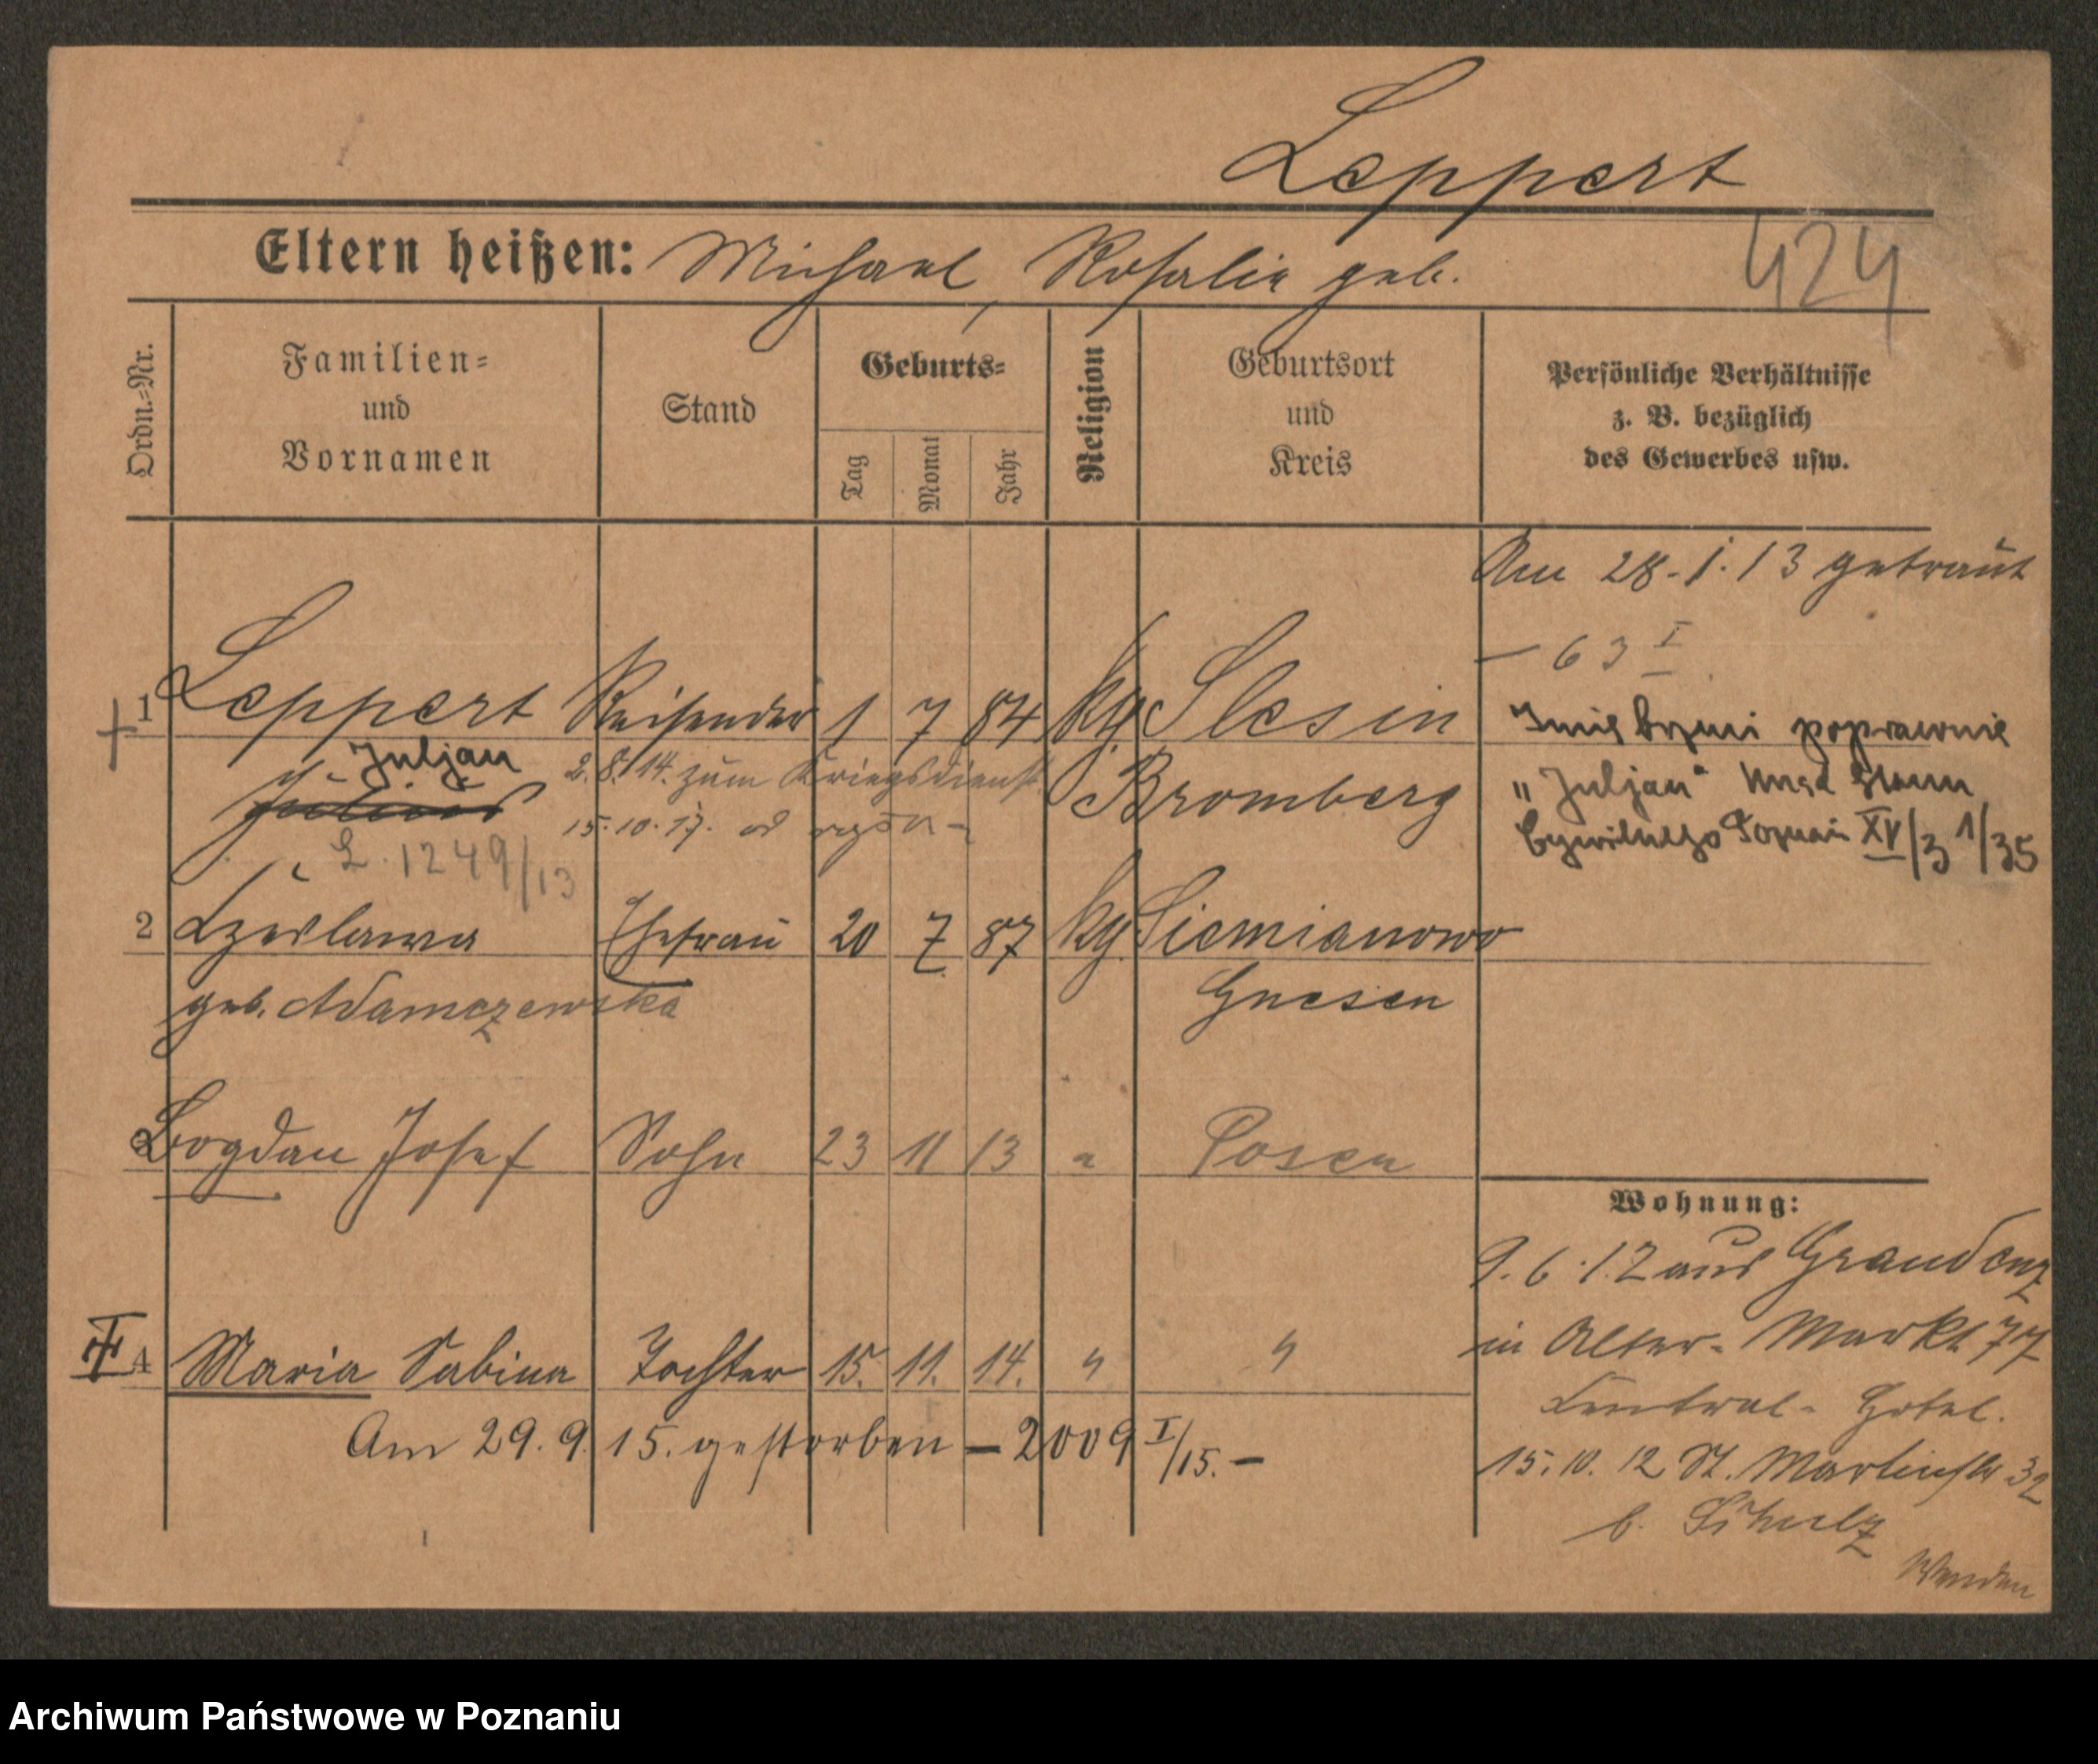 Leppert
Eltern heißen: Michael, Rosalie geb.
424
Ordn.-Nr.
Familien-
und
Vornamen
Stand
Geburts-
Tag
Monat
Jahr
Religion
Geburtsort
und
Kreis
Persönliche Verhältnisse
z. B. bezüglich
des Gewerbes usw.
Am 28.1.13 getraut
- 63 I
1 Leppert Reisender 1 7 84 kg Slesin
Juljan
Julius
2.8.14. zum Kriegsdienst
Bromberg
15.10.17.
L. 1249/13
Imię brzmi poprawnie
"Juljan" Urząd Stanu
Cywilnego Poznań XV/3 1/35
2 Czeslawa Ehefrau 20 7 87 kg. Siemianowo
geb. Adamczewska Gnesen
Bogdan Josef Sohn 23 11 13 " Posen
Wohnung:
9.6.12 aus Graudenz
in Alter-Markt 77
Central-Hotel.
15.10.12 St. Martinstr 32
b. Schulz
Wenden
4 Maria Sabina Tochter 15. 11. 14. " "
Am 29.9.15. gestorben - 2009 I/15. -
Archiwum Państwowe w Poznaniu